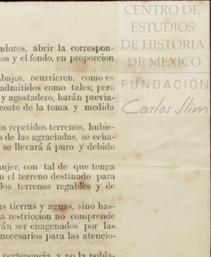 CENTRO DE
ESTUDIOS
DE HISTORIA
DE MEXICO
FUNDACIÓN
Carlos Slim
adores, abrir la correspon-
os y el fondo, en proporcion
abajos, ocurrieren, como es
admitidos como tales; pero
y agostadero, harán previa-
costo de la toma y medida
os repetidos terrenos, hubie-
s de las agraciadas, se echa-
se llevará á puro y debido
ujer, con tal de que tenga
n el terreno destinado para
dos terrenos regables y de
s tierras y aguas, sino has-
a restriccion no comprende
rán ser enagenados por las
necesarios para las atencio-
pertenencia, y no la pobla-